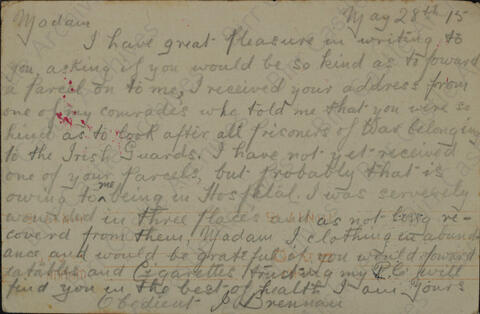 Madam May 28th 15
I have great pleasure in writing to
you asking if you would be so kind as to foward
a parcel on to me, I received your address from
one of my comrades who told me that you were so
kind as to look after all prisoners of War belonging
to the Irish Guards. I have not yet received
one of your parcels, but probably that is
owing to me being in Hospital. I was serverely
wound in three places and as not long re-
coverd from them, Madam I clothing in abund
ance and would be grateful if you would foward
eatables and Cigarettes trusting my P.C. will
find you in the best of health I am Yours
Obedient J Brennan